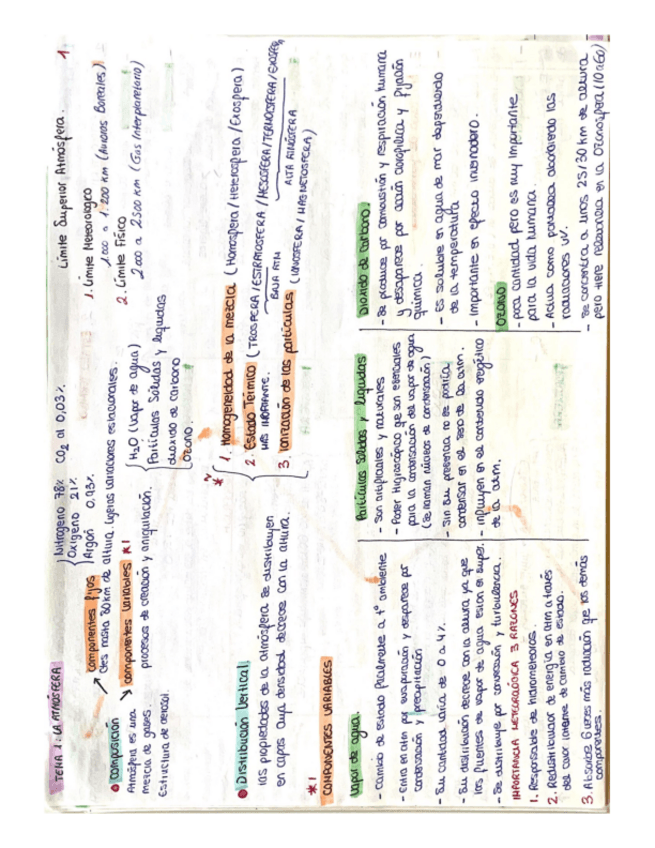 TEMA 1: LA ATMÓSFERA
1
● Composición
Atmósfera es una
mezcla de gases.
Estructura de aerosol.
componentes fijos
Ctes hasta 80km de altura. Ligeras variaciones estacionales.
Nitrógeno 78%
Oxígeno 21%
Argón 0,93%
CO2 al 0,03%
componentes variables *1
procesos de creación y aniquilación.
H2O (Vapor de agua)
Partículas Sólidas y líquidas
dióxido de carbono
Ozono.
Límite Superior Atmósfera.
1. Límite Meteorológico
1000 a 1.200 km (Auroras Boreales)
2. Límite Físico
2000 a 2500 km (Gas Interplanetario)
● Distribución Vertical:
las propiedades de la atmósfera se distribuyen
en capas cuya densidad decrece con la altura.
1. Homogeneidad de la mezcla (Homosfera / Heterosfera / Exosfera)
2. Estado Térmico (TROPOSFERA / ESTRATOSFERA / MESOSFERA / TERMOSFERA / EXOSFERA)
MAS IMPORTANTE.
BAJA ATM
ALTA ATMÓSFERA
3. Ionización de las partículas (IONOSFERA / MAGNETOSFERA)
*1
COMPONENTES VARIABLES
Vapor de agua.
- Cambio de estado fácilmente a tº ambiente
- Entra en atm por evaporación y desaparece por
condensación y precipitación
- Su cantidad varía de 0 a 4%.
- Su distribución decrece con la altura ya que
las fuentes de vapor de agua están en super.
- Se distribuye por convección y turbulencia.
IMPORTANCIA METEOROLÓGICA 3 RAZONES
1. Responsable de hidrometeoros.
2. Redistribuidor de energía en atm a través
del calor latente de cambio de estado.
3. Absorbe 6 veces más radiación que los demás
componentes.
Partículas Sólidas y líquidas
- Son artificiales y naturales
- Poder Higroscópico que son esenciales
para la condensación del vapor de agua
(Se llaman núcleos de condensación)
- Sin su presencia no se podría
condensar en el seno de la atm.
- influyen en el contenido energético
de la atm.
Dióxido de carbono.
- Se produce por combustión y respiración humana
y desaparece por acción clorofílica y fijación
química.
- Es soluble en agua de mar dependiendo
de la temperatura
- Importante en efecto invernadero.
OZONO
- poca cantidad pero es muy importante
para la vida humana.
- Actúa como pantalla absorbiendo las
radiaciones UV.
- Se concentra a unos 25/30 km de altura
pero tiene relevancia en la Ozonosfera (10 a 60)